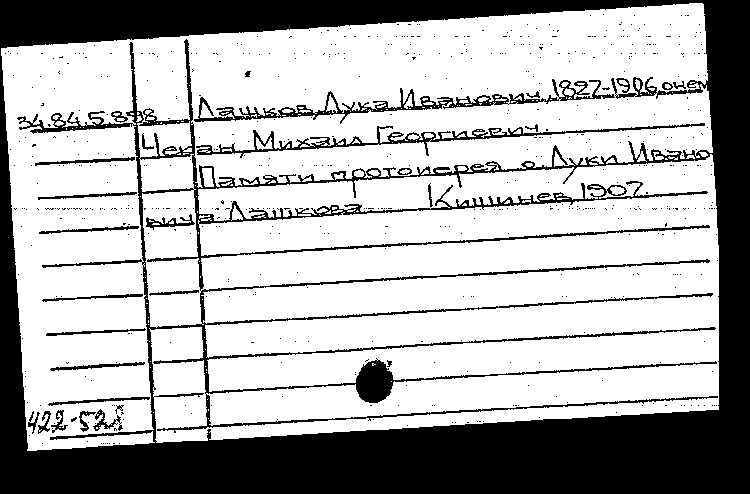 34.84.5.898 Лашков, Лука Иванович, 1827-1906, о нем
Чекан, Михаил Георгиевич.
Памяти протоиерея о. Луки Ивано-
вича Лашкова. Кишинев, 1907.
422-528